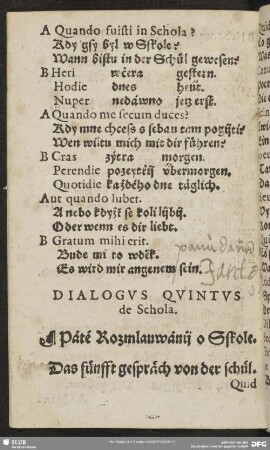 A Quando fuisti in Schola?
Kdy gsy byl w Sskole?
Wann bistu in der Schůl gewesen?
B Heri wčera gestern.
Hodie dnes heůt.
Nuper nedáwno jetz erst.
A Quando me secum duces?
Kdy mne chceß s sebau tam pogijti?
Wen wiltu mich mit dir führen?
B Cras zýtra morgen.
Perendie pozeytřij übermorgen.
Quotidie každého dne täglich.
Aut quando lubet.
A nebo kdyžť se koli lijbij.
Oder wenn es dir liebt.
B Gratum mihi erit.
Bude mi to wděk.
Es wird mir angenem sein.
DIALOGVS QVINTVS
de Schola.
¶ Páté Rozmlauwánij o Sskole.
Das fünfft gespräch von der schůl.
Quid
SLUB
DFG